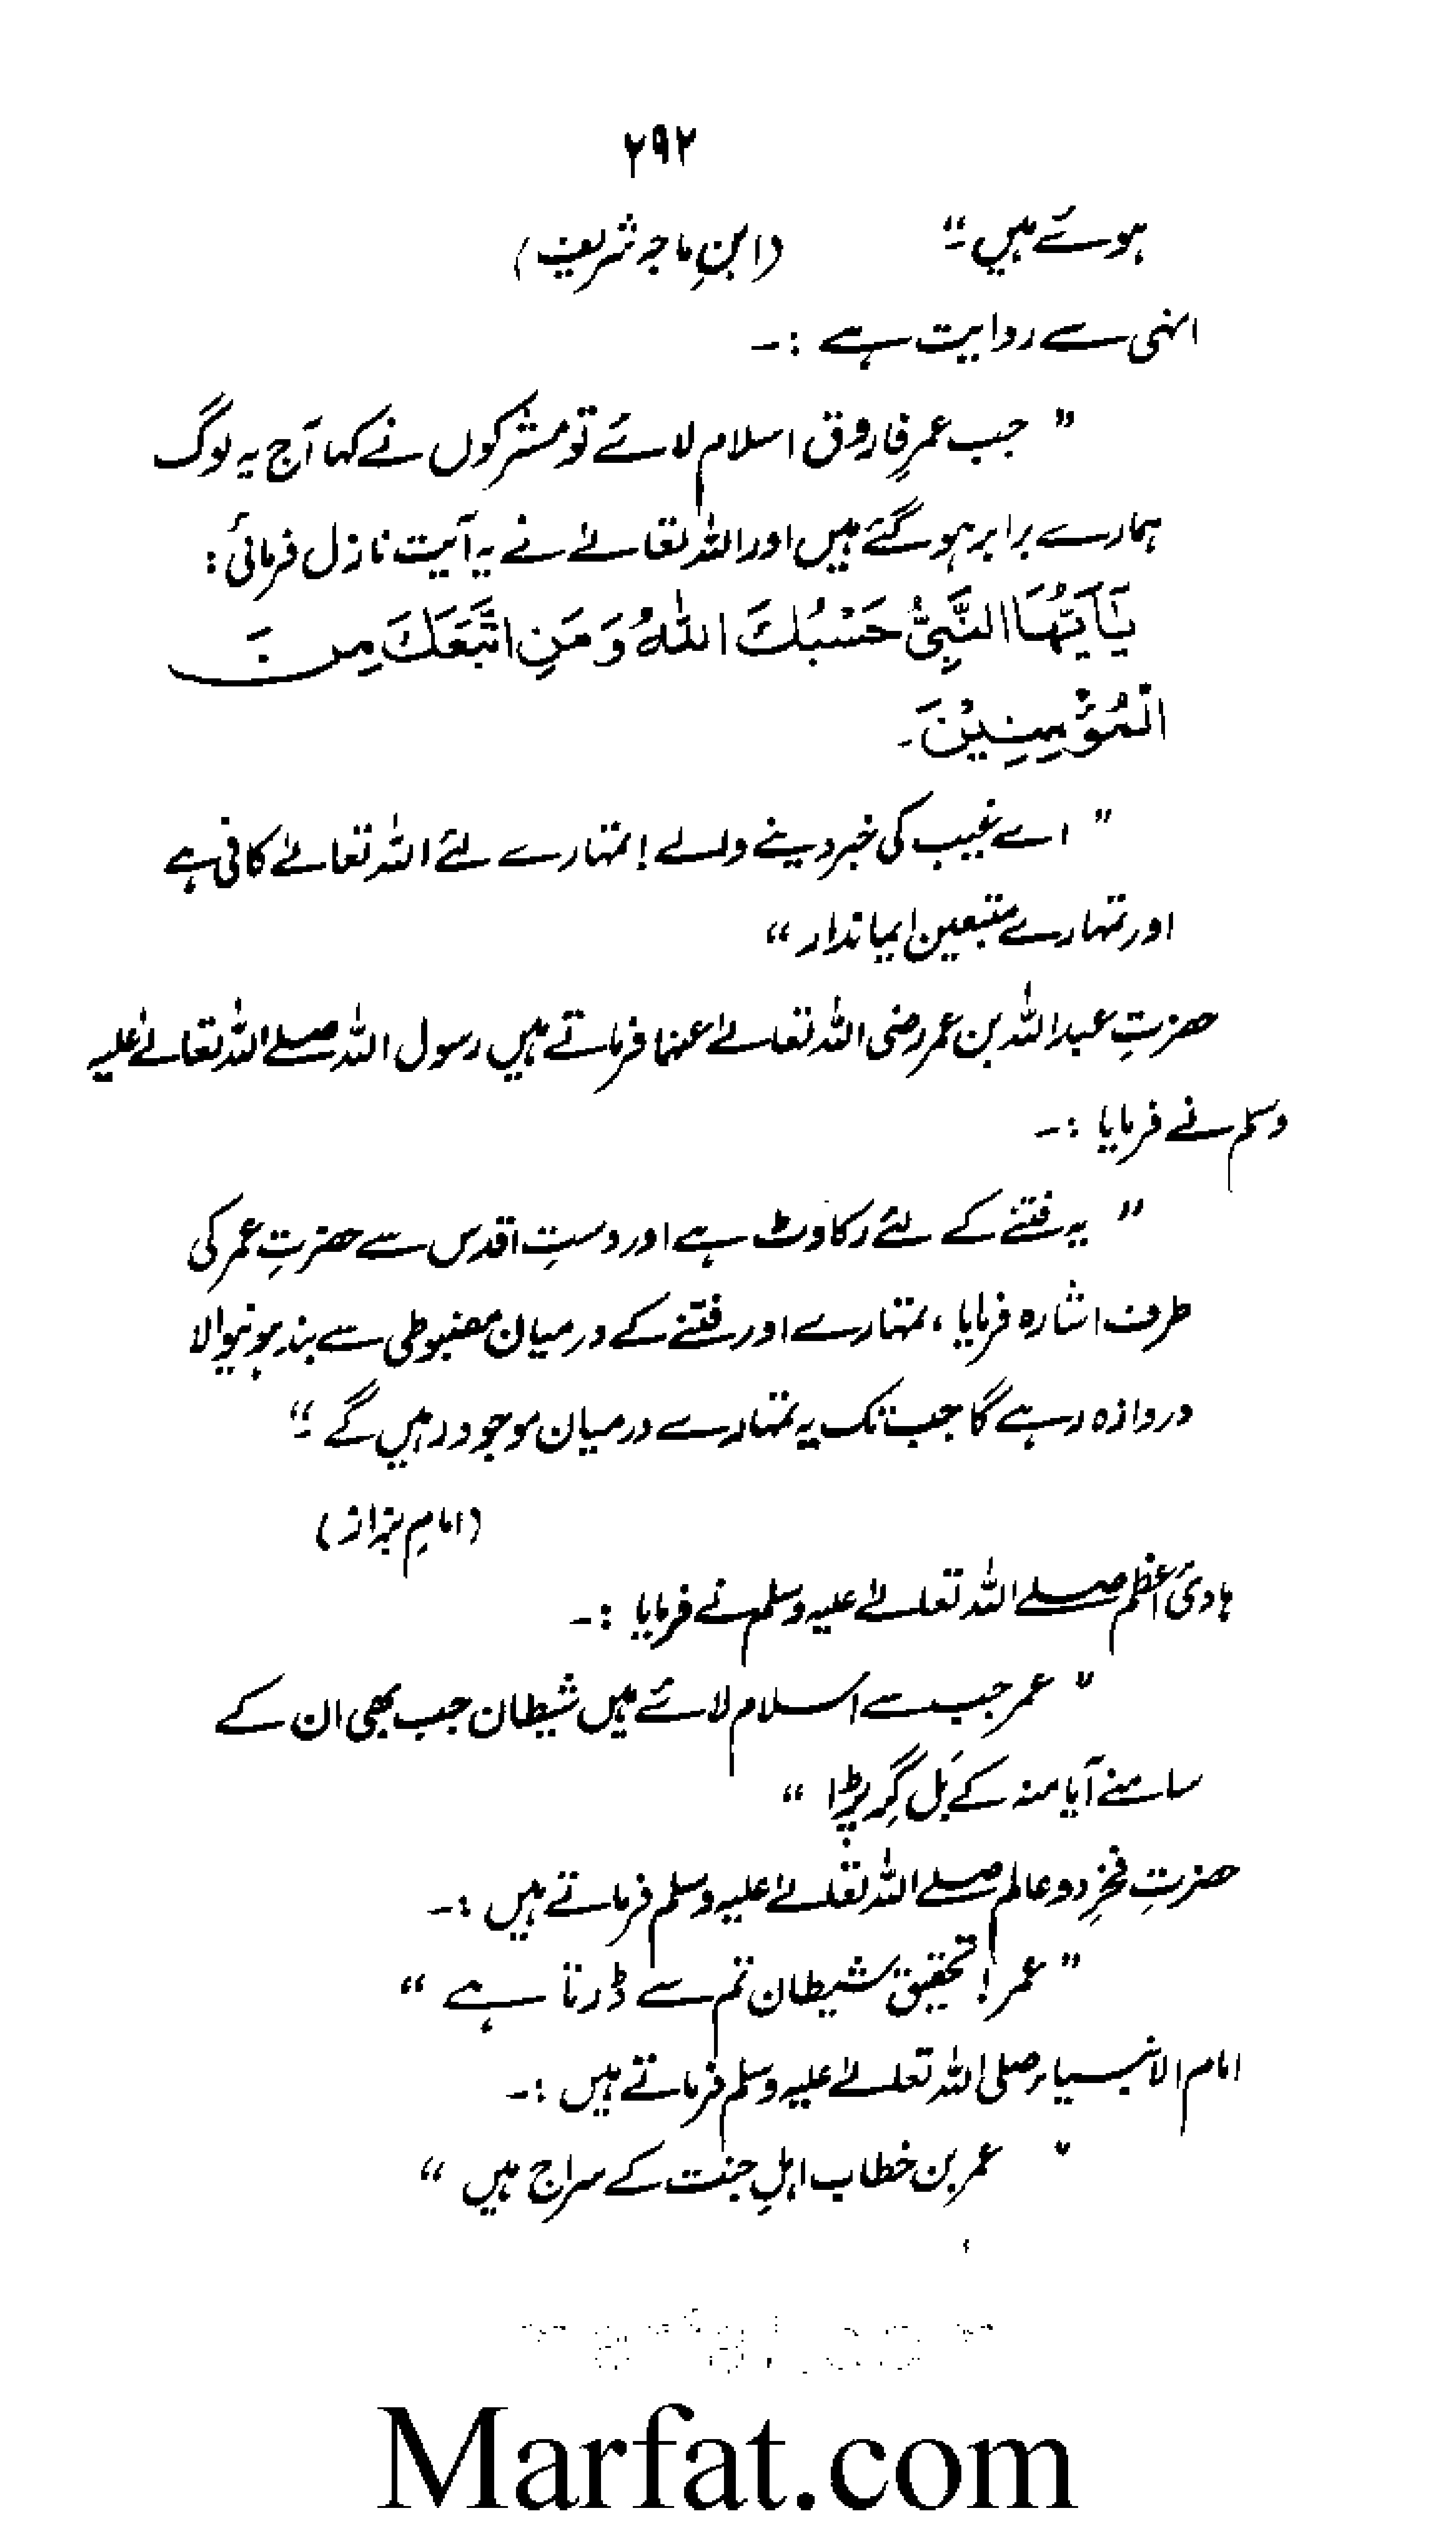 ۲۹۲
ہوئے ہیں ۔" (ابنِ ماجہ شریف)
انہی سے روایت ہے :۔
" جب عمر فاروق اسلام لائے تو مشرکوں نے کہا آج یہ لوگ
ہمارے برابر ہو گئے ہیں اور اللہ تعالےٰ نے یہ آیت نازل فرمائی :
يَٰٓأَيُّهَا النَّبِىُّ حَسْبُكَ اللّٰهُ وَ مَنِ اتَّبَعَكَ مِنَ
الْمُؤْمِنِيْنَ۔
" اے غیب کی خبر دینے والے ! تمہارے لئے اللہ تعالےٰ کافی ہے
اور تمہارے متبعین ایماندار "
حضرتِ عبداللہ بن عمر رضی اللہ تعالےٰ عنہما فرماتے ہیں رسول اللہ صلے اللہ تعالےٰ علیہ
وسلم نے فرمایا :۔
" یہ فتنے کے لئے رکاوٹ ہے اور دستِ اقدس سے حضرتِ عمر کی
طرف اشارہ فرمایا ، تمہارے اور فتنے کے درمیان مضبوطی سے بند ہونیوالا
دروازہ رہے گا جب تک یہ تمہارے درمیان موجود رہیں گے ۔"
(امامِ بزاز)
ہادیٔ اعظم صلے اللہ تعالےٰ علیہ وسلم نے فرمایا :۔
" عمر جب سے اسلام لائے ہیں شیطان جب بھی ان کے
سامنے آیا منہ کے بَل گِر پڑا "
حضرتِ فخرِ دو عالم صلے اللہ تعالےٰ علیہ وسلم فرماتے ہیں :۔
" عمر ! تحقیق شیطان تم سے ڈرتا ہے "
امام الانبیاء صلی اللہ تعالےٰ علیہ وسلم فرماتے ہیں :۔
" عمر بن خطاب اہلِ جنت کے سراج ہیں "
Marfat.com